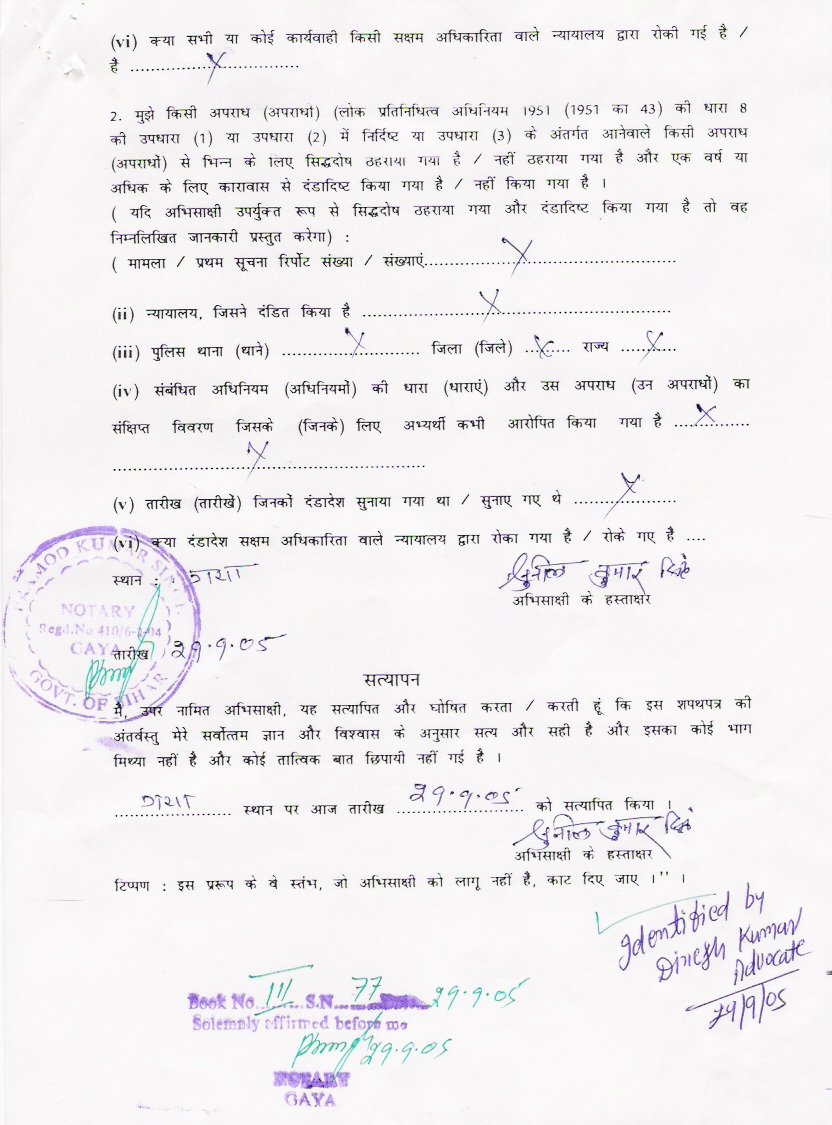 (vi) क्या सभी या कोई कार्यवाही किसी सक्षम अधिकारिता वाले न्यायालय द्वारा रोकी गई है /
है ..............X..............
2. मुझे किसी अपराध (अपराधों) (लोक प्रतिनिधित्व अधिनियम 1951 (1951 का 43) की धारा 8
की उपधारा (1) या उपधारा (2) में निर्दिष्ट या उपधारा (3) के अंतर्गत आनेवाले किसी अपराध
(अपराधों) से भिन्न के लिए सिद्धदोष ठहराया गया है / नहीं ठहराया गया है और एक वर्ष या
अधिक के लिए कारावास से दंडादिष्ट किया गया है / नहीं किया गया है ।
( यदि अभिसाक्षी उपर्युक्त रूप से सिद्धदोष ठहराया गया और दंडादिष्ट किया गया है तो वह
निम्नलिखित जानकारी प्रस्तुत करेगा) :
( मामला / प्रथम सूचना रिर्पोट संख्या / संख्याएं..............X..............
(ii) न्यायालय, जिसने दंडित किया है ..............X..............
(iii) पुलिस थाना (थाने) ..........X.......... जिला (जिले) ...X... राज्य ....X....
(iv) संबंधित अधिनियम (अधिनियमों) की धारा (धाराएं) और उस अपराध (उन अपराधों) का
संक्षिप्त विवरण जिसके (जिनके) लिए अभ्यर्थी कभी आरोपित किया गया है ....X....
..............X..............
(v) तारीख (तारीखें) जिनकों दंडादेश सुनाया गया था / सुनाए गए थे ........X........
(vi) क्या दंडादेश सक्षम अधिकारिता वाले न्यायालय द्वारा रोका गया है / रोके गए है ....
स्थान : गया
सुनील कुमार
अभिसाक्षी के हस्ताक्षर
PRAMOD KUMAR
NOTARY
Regd.No 410/6-
GAYA
GOVT. OF BIHAR
तारीख 29.9.05
सत्यापन
मैं, उपर नामित अभिसाक्षी, यह सत्यापित और घोषित करता / करती हूं कि इस शपथपत्र की
अंतर्वस्तु मेरे सर्वोत्तम ज्ञान और विश्वास के अनुसार सत्य और सही है और इसका कोई भाग
मिथ्या नहीं है और कोई तात्विक बात छिपायी नहीं गई है ।
गया स्थान पर आज तारीख 29.9.05 को सत्यापित किया ।
सुनील कुमार
अभिसाक्षी के हस्ताक्षर
टिप्पण : इस प्ररूप के वे स्तंभ, जो अभिसाक्षी को लागू नहीं है, काट दिए जाए ।'' ।
Identified by
Dinesh Kumar
Advocate
29/9/05
Book No. III S.N. 77 29.9.05
Solemnly affirmed before me
29.9.05
NOTARY
GAYA